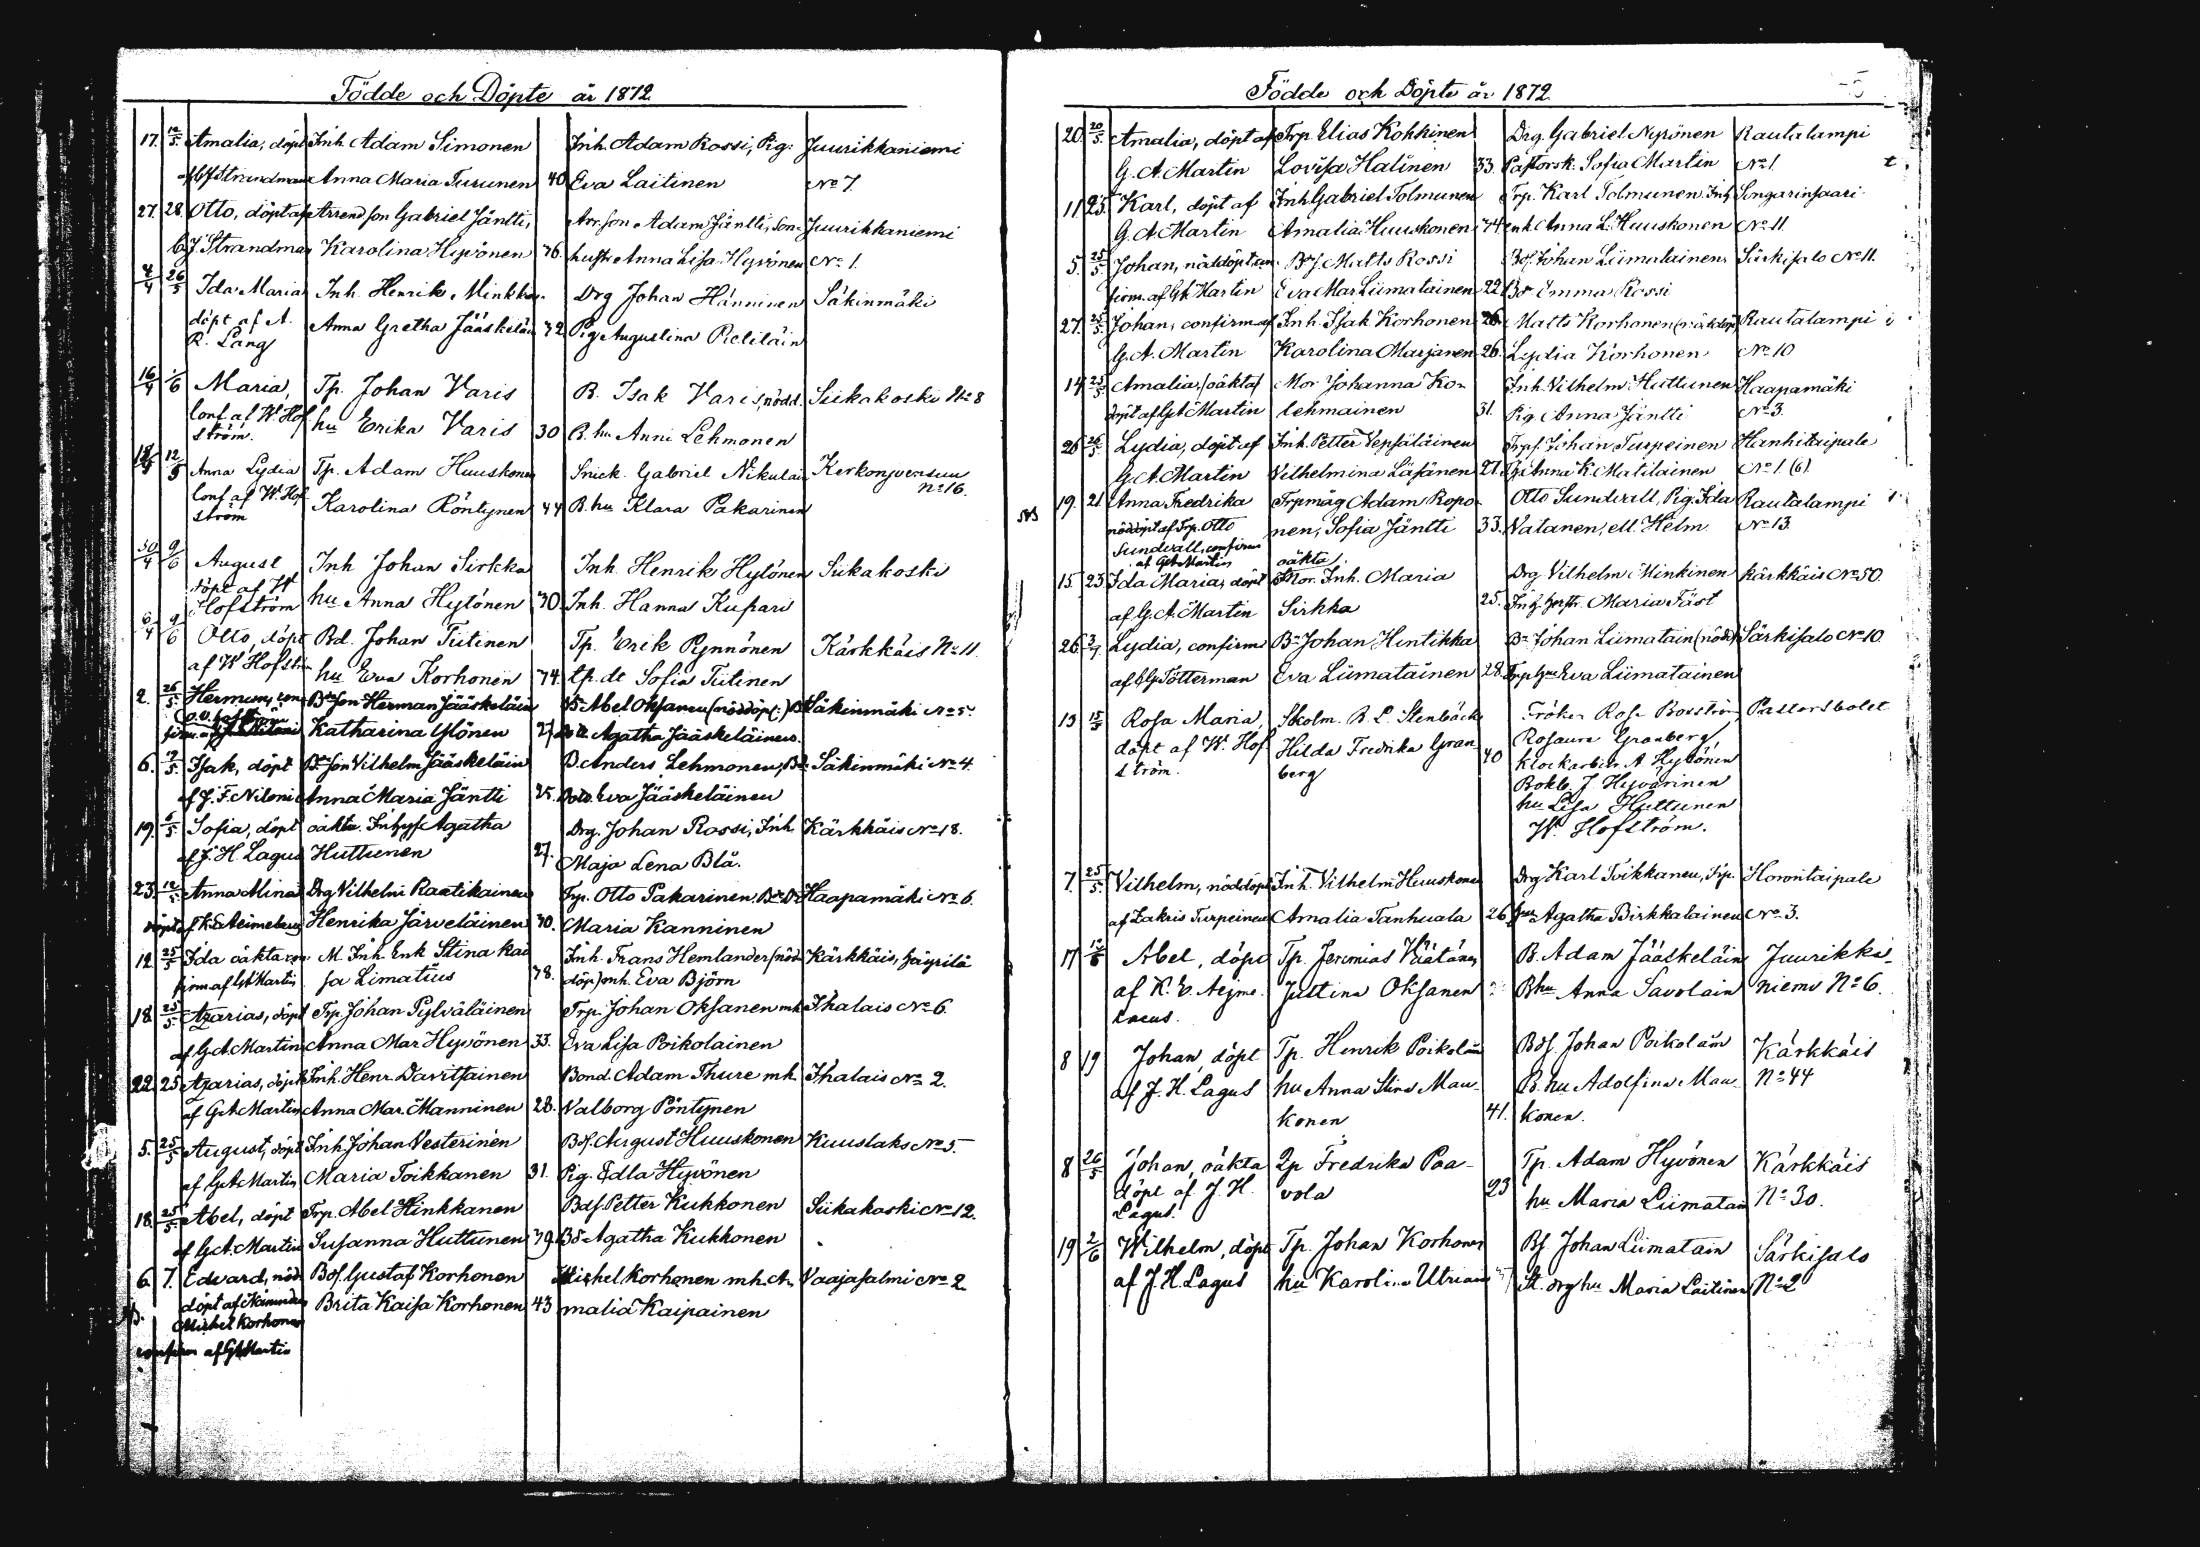 Födde och Döpte år 1872.
17. 12/5. Amalia, döpt Inh. Adam Simonen Inh. Adam Rossi, Pig. Juurikkaniemi
Strandman Anna Maria Turunen 40 Eva Laitinen No 7.
27. 28. Otto, döpt af Arrend son Gabriel Jäntti, Arr. son Adam Jäntti, son Juurikkaniemi
Strandman Karolina Hyvönen 36. hustr Anna Lisa Hyvönen No 1.
4/4 26/5 Ida Maria Inh. Henrik Minkki Drg Johan Hänninen Säkinmäki
döpt af A. Anna Gretha Jääskeläin 32 Pig Augustina Pieliläin
R. Lang
16/4 1/6 Maria, Tp. Johan Varis B. Isak Varis, nödd. Siikakoski No 8
Conf af W. Hof hu Erika Varis 30 B. hu Anni Lehmonen
ström.
12/5 Anna Lydia Tp. Adam Huuskonen Snick. Gabriel Nikulain Kerkonjoensuu
Conf af W. Hof Karolina Röntynen 44 B. hu Klara Pakarinen No 16.
ström
30/4 9/6 August Inh Johan Sirkka Inh. Henrik Hytönen Siikakoski
döpt af W. hu Anna Hytönen 30. Inh. Hanna Kupari
Hofström
6/4 9/6 Otto, döpt Bd. Johan Tiitinen Tp. Erik Rynnönen Kärkkäis No 11.
af W Hofström hu Eva Korhonen 34. tp. dr Sofia Tiitinen
2. 26/5. Herman, con Bdeson Herman Jääskeläin Bn Abel Oksanen (nöddöpt:) Säkinmäki No 5.
Katharina Ylönen 27 Agatha Jääskeläinen.
6. 19/5. Isak, döpt Bdeson Vilhelm Jääskeläin B. Anders Lehmonen, Säkinmäki No 4.
af J. F. Niloni Anna Maria Jäntti 25. Eva Jääskeläinen
19. 5/5. Sofia, döpt oäkta. Agatha Drg. Johan Rossi, Inh. Kärkkäis No 18.
af J. H. Lagus Huttunen 27. Maja Lena Blå.
23. 12/5. Anna Mina Drg Vilhelm Raatikainen Trp. Otto Pakarinen. Haapamäki No 6.
döpt af K. E. Aejmelaeus Henrika Järveläinen 30. Maria Kanninen
12. 25/5 Ida oäkta con M. Inh. Enk Stina Kai Inh. Frans Hemlander (nöd Kärkkäis,
firm af G A Martin sa Limatius 38. döp) mh. Eva Björn
18. 25/5. Azarias, döpt Trp. Johan Pylväläinen Trp. Johan Oksanen mh. Ihalais No 6.
af G. A. Martin Anna Mar Hyvönen 33. Eva Lisa Poikolainen
22. 25 Azarias, döpt Inh. Henr. Davitsainen Bond. Adam Thure mh. Ihalais No 2.
af G. A. Martin Anna Mar. Manninen 28. Valborg Pöntynen
5. 25/5 August, döpt Inh. Johan Vesterinen Bdf. August Huuskonen Kuuslaks No 5.
af G. A. Martin Maria Toikkanen 31. Pig. Edla Hyvönen
18. 25/5 Abel, döpt Trp. Abel Hinkkanen Bdf. Petter Kukkonen Siikakoski No 12.
af G. A. Martin Susanna Huttunen 39. Bd. Agatha Kukkonen
6. 7. Edvard, nöd Bdf. Gustaf Korhonen Michel Korhonen mh. A. Vaajasalmi No 2
döpt af Brita Kaisa Korhonen 43 malia Kaipainen
Michel Korhonen
confirm af G A Martin
Födde och Döpte år 1872.
20. 20/5. Amalia, döpt af Trp. Elias Kohkinen Drg. Gabriel Nyrönen Rautalampi
G. A. Martin Lovisa Halinen 33. Pastorsk. Sofia Martin No 1.
11. 25. Karl, döpt af Inh Gabriel Tolmunen Trp. Karl Tolmunen. Songarinsaari
G. A. Martin Amalia Huuskonen 34 enk. Anna L. Huuskonen No 11.
5. 25/5 Johan, nöddöpt con Bdf. Matts Rossi Bdf. Johan Liimatainen Särkisalo No 11.
firm. af G A Martin Eva Mar. Liimatainen 22 Emma Rossi
27. 25/5 Johan, confirm af Inh. Isak Korhonen 26. Matts Korhonen (nöddöpt) Rautalampi
G. A. Martin Karolina Marjanen 26. Lydia Korhonen No 10
14. 25/5 Amalia, oäkta Mor Johanna Ko- Inh. Vilhelm Huttunen Haapamäki
döpt af G A Martin lehmainen 31. Pig. Anna Jäntti No 3.
26 26/5 Lydia, döpt af Inh. Petter Vepsäläinen Johan Turpeinen Hanhitaipale
G. A. Martin Vilhelmina Läsänen 21. Anna K. Matilainen No 1. (6)
19. 21. Anna Fredrika Trpmåg Adam Ropo- Otto Sundvall, Pig. Ida Rautalampi
nöddöpt af Trp. Otto nen, Sofia Jäntti 33. Vatanen, ell. Helm No 13.
Sundvall, confirm
af G A Martin oäkta.
15. 23. Ida Maria, döpt Mor. Inh. Maria Drg Vilhelm Minkinen Kärkkäis No 50.
af G. A. Martin Sirkka 25. Maria Fäst
26 3/7 Lydia, confirm Bn Johan Hintikka Bn Johan Liimatain (nödd) Särkisalo No 10.
Tötterman Eva Liimatainen 28. Eva Liimatainen
13 15/5 Rosa Maria, Skolm. R. L. Stenbäck Fröken Rosa Rosström Pastorsbolet
döpt af W. Hof Hilda Fredrika Gran 40 Rosaura Granberg
ström. berg Klockar A. Hytönen
Bokh. J. Hyvärinen
hu Lisa Huttunen
W. Hofström.
7. 25/5. Vilhelm, nöddöpt Inh. Vilhelm Huuskonen Drg Karl Toikkanen, Trp. Horontaipale
af Zakris Turpeinen Amalia Tanhuala 26 Agatha Birkkalainen No 3.
17 Abel, döpt Tp. Jeremias Väätänen B. Adam Jääskeläin Juurikka-
af K. E. Aejme Justina Oksanen Bhu Anna Savolain niemi No 6.
laeus.
8 19 Johan, döpt Tp. Henrik Poikoläin Bdf. Johan Poikoläin Kärkkäis
af J. H. Lagus hu Anna Stina Mau- B. hu Adolfina Mau- No 44
konen 41. konen.
8 26/5 Johan, oäkta Qp Fredrika Paa- Tp. Adam Hyvönen Kärkkäis
döpt af J. H. vola 23 hu Maria Liimatain No 30.
Lagus.
19 2/6 Wilhelm, döpt Tp. Johan Korhonen Bf. Johan Liimatain Särkisalo
af J. H. Lagus hu Karolina Utriain St. drghu Maria Laitinen No 2